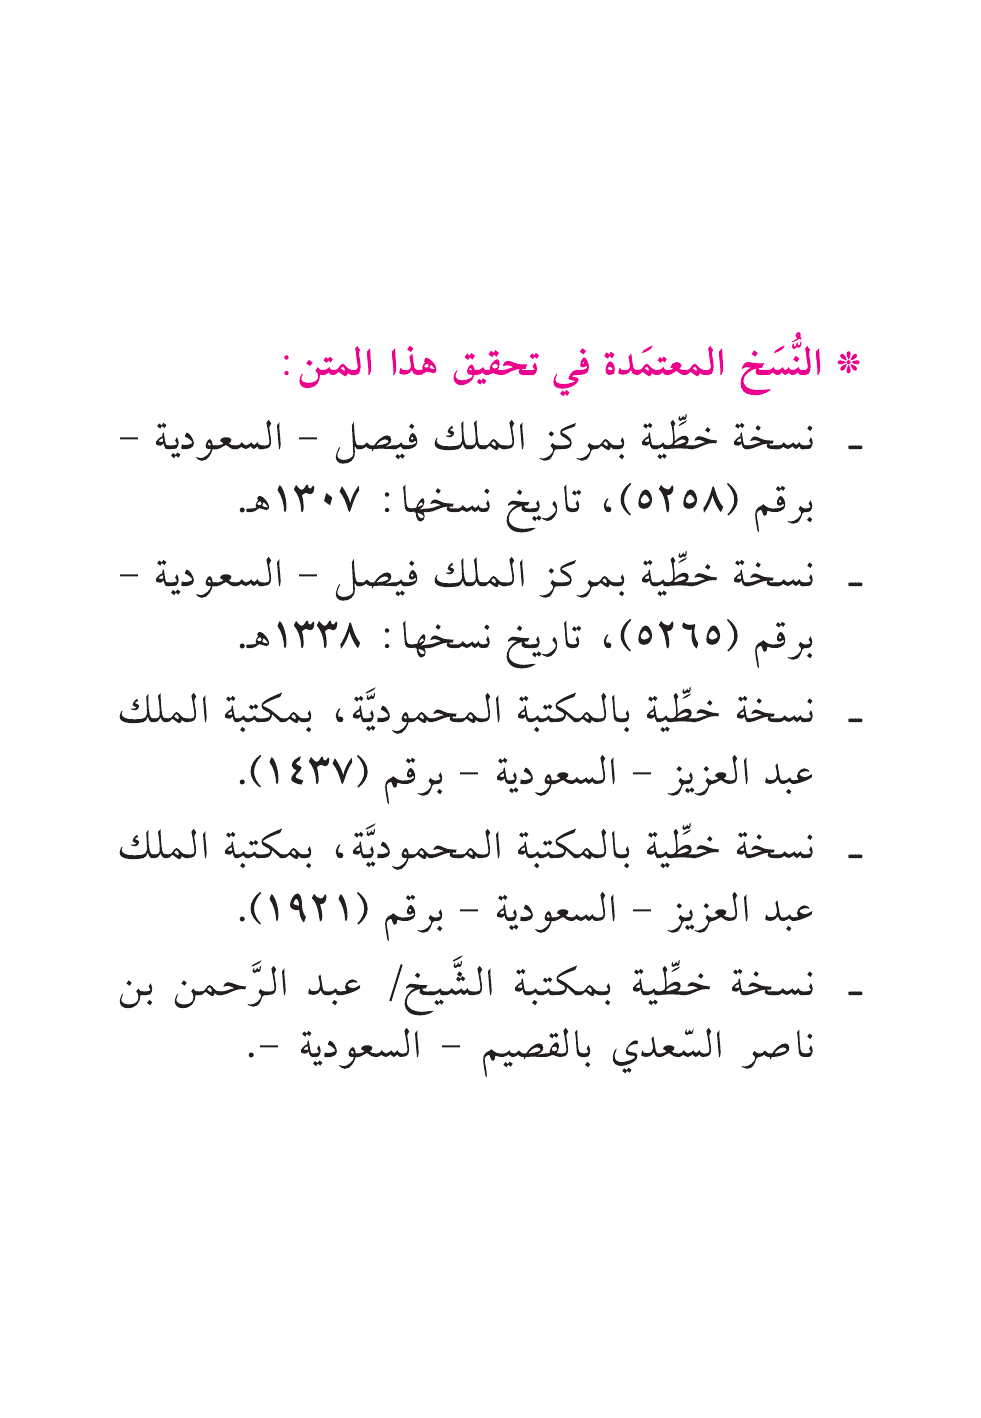 ❊ النُّسَخ المعتمَدة في تحقيق هذا المتن:
ـ نسخة خطِّية بمركز الملك فيصل – السعودية –
برقم (٥٢٥٨)، تاريخ نسخها: ١٣٠٧هـ.
ـ نسخة خطِّية بمركز الملك فيصل – السعودية –
برقم (٥٢٦٥)، تاريخ نسخها: ١٣٣٨هـ.
ـ نسخة خطِّية بالمكتبة المحموديَّة، بمكتبة الملك
عبد العزيز – السعودية – برقم (١٤٣٧).
ـ نسخة خطِّية بالمكتبة المحموديَّة، بمكتبة الملك
عبد العزيز – السعودية – برقم (١٩٢١).
ـ نسخة خطِّية بمكتبة الشَّيخ/ عبد الرَّحمن بن
ناصر السّعدي بالقصيم – السعودية –.